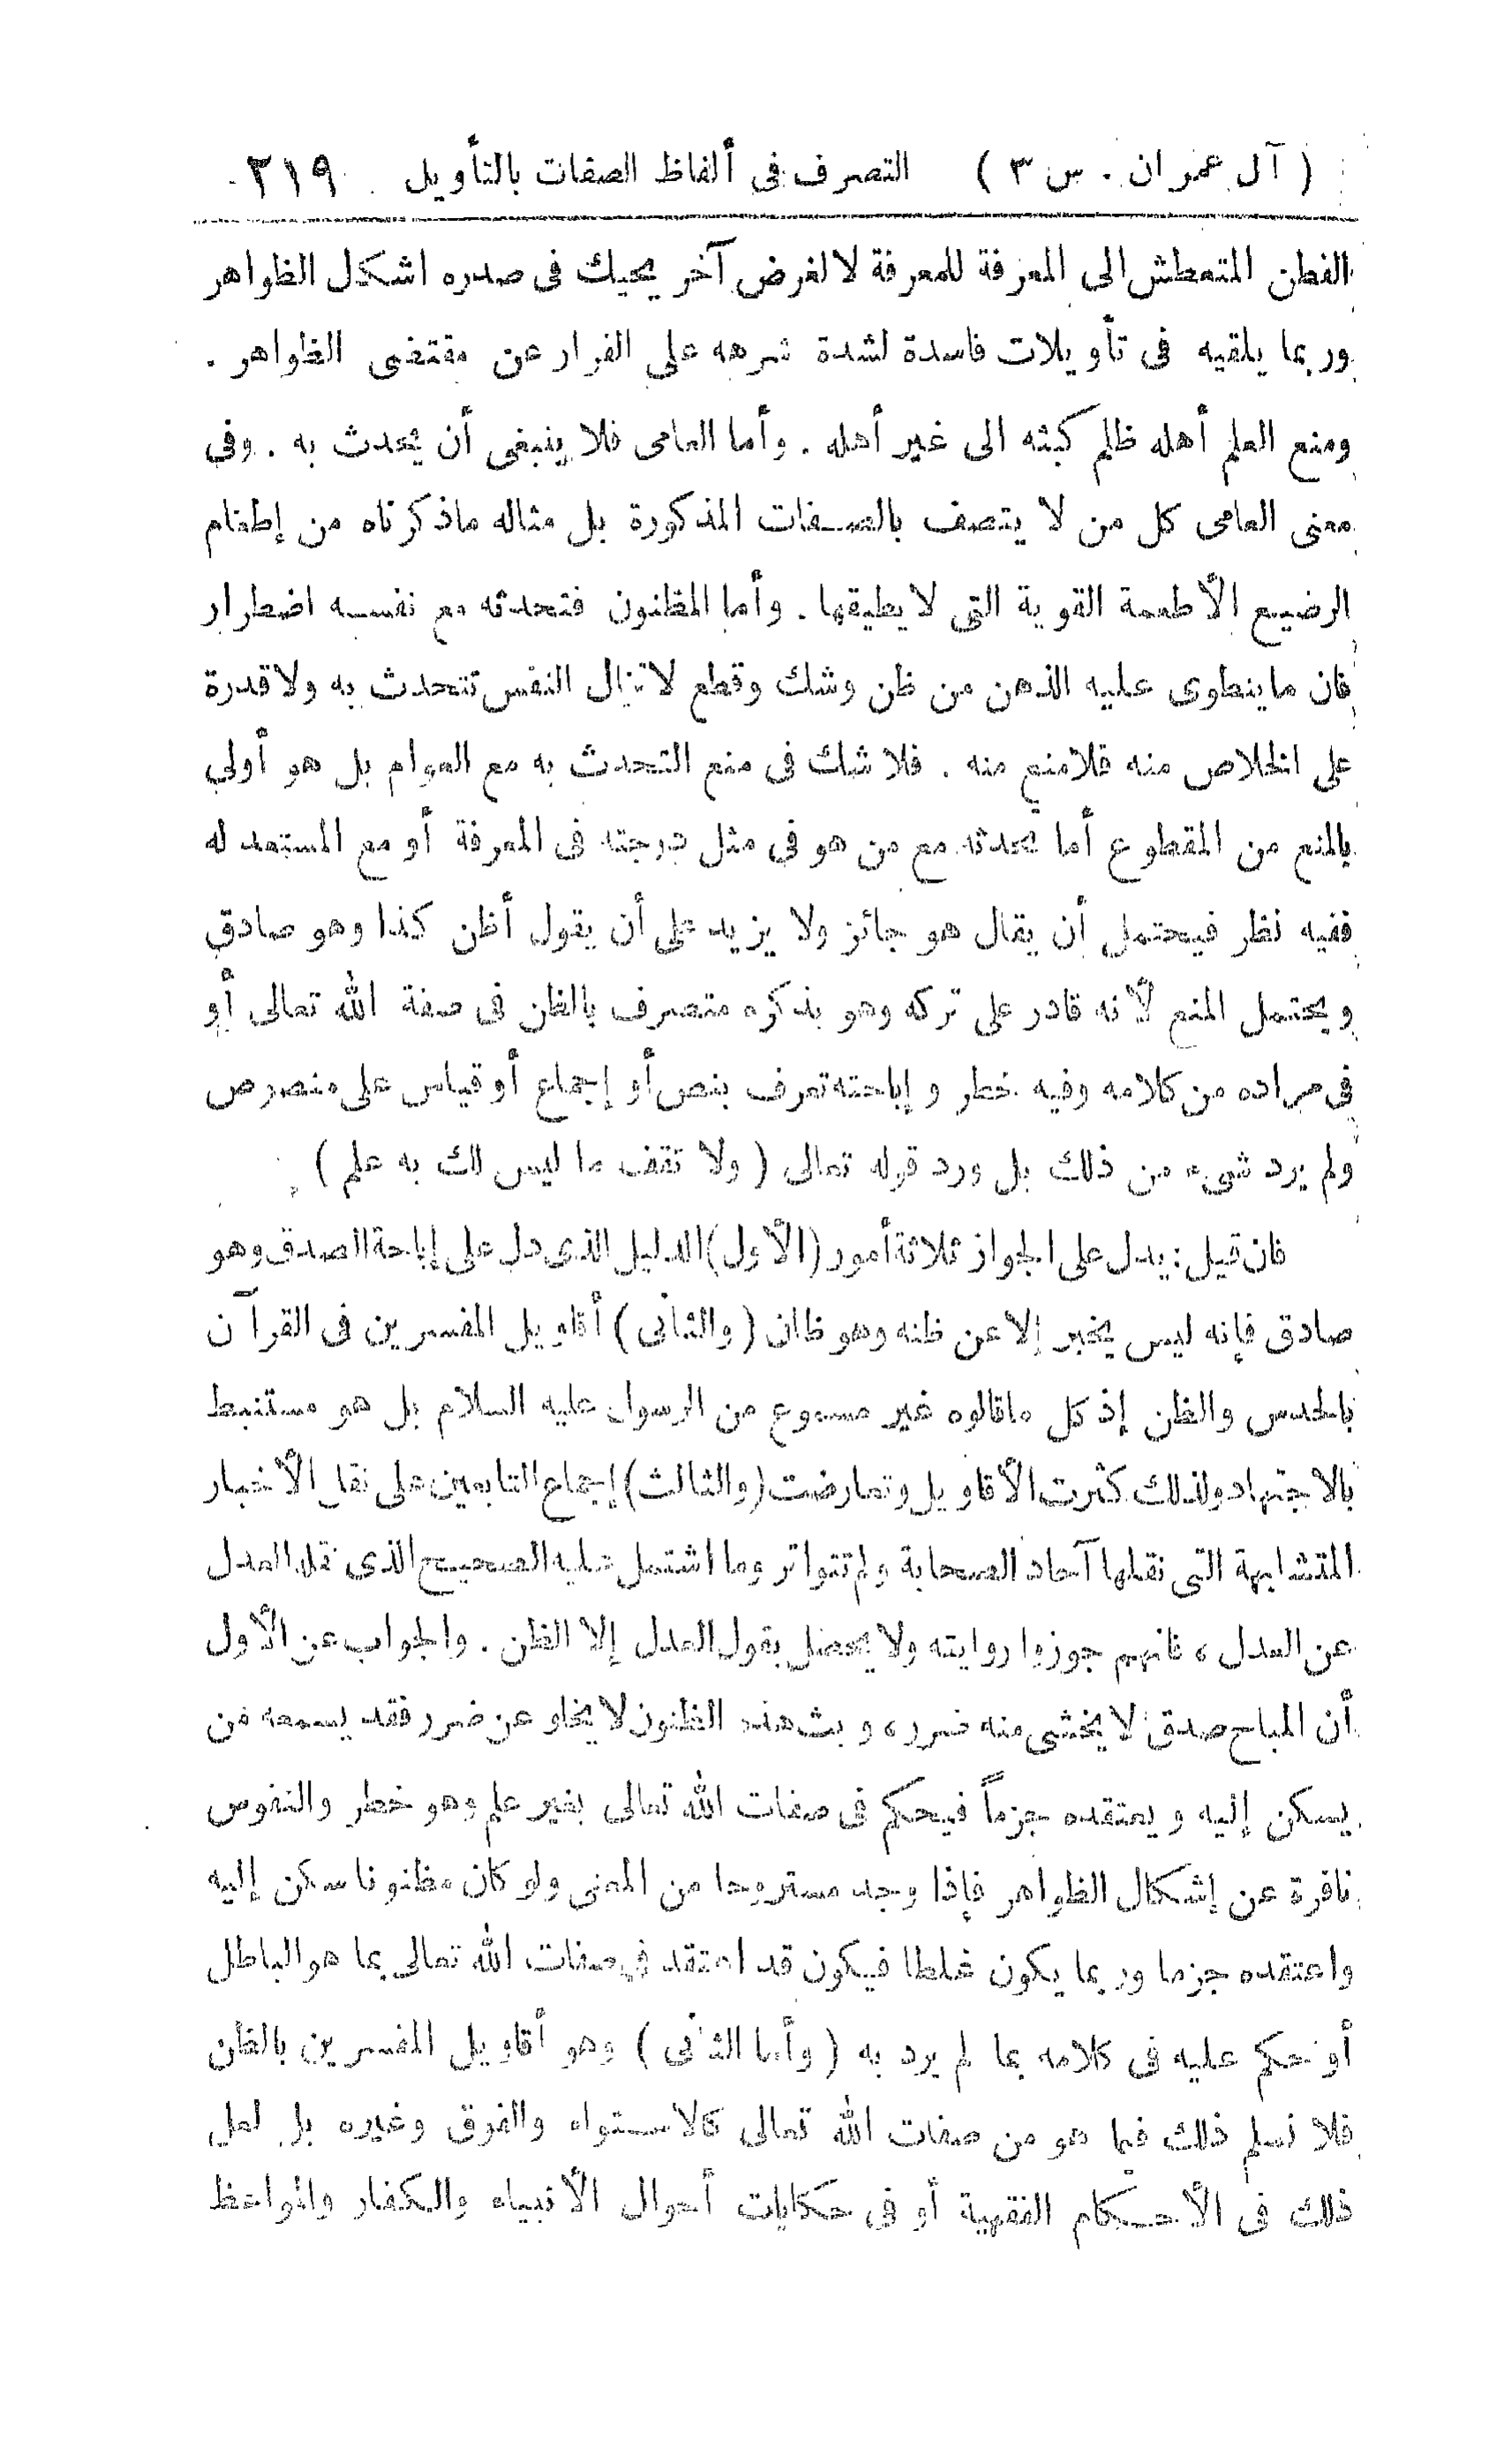 ( آل عمران . س ٣ ) التصرف فى ألفاظ الصفات بالتأويل ٢١٩
الفطن المتعطش الى المعرفة للمعرفة لا لغرض آخر يحيك فى صدره اشكال الظواهر
وربما يلقيه فى تأويلات فاسدة لشدة شرهه على الفرار عن مقتضى الظواهر .
ومنع العلم أهله ظلم كبثه الى غير أهله . وأما العامى فلا ينبغى أن يحدث به . وفى
معنى العامى كل من لا يتصف بالصفات المذكورة بل مثاله ماذكرناه من إطعام
الرضيع الأطعمة القوية التى لا يطيقها . وأما المظنون فتحدثه مع نفسه اضطرار
فان ما ينطوى عليه الذهن من ظن وشك وقطع لا تزال النفس تتحدث به ولا قدرة
على الخلاص منه فلا منع منه . فلا شك فى منع التحدث به مع العوام بل هو أولى
بالمنع من المقطوع أما تحدثه مع من هو فى مثل درجته فى المعرفة أو مع المستعد له
ففيه نظر فيحتمل أن يقال هو جائز ولا يزيد على أن يقول أظن كذا وهو صادق
ويحتمل المنع لأنه قادر على تركه وهو بذكره متصرف بالظن فى صفة الله تعالى أو
فى مراده من كلامه وفيه خطر وإباحته تعرف بنص أو إجماع أو قياس على منصوص
ولم يرد شىء من ذلك بل ورد قوله تعالى ( ولا تقف ما ليس لك به علم )
فان قيل : يدل على الجواز ثلاثة أمور (الأول) الدليل الذى دل على إباحة الصدق وهو
صادق فإنه ليس يخبر إلا عن ظنه وهو ظان ( والثانى ) أقاويل المفسرين فى القرآن
بالحدس والظن إذ كل ماقالوه غير مسموع من الرسول عليه السلام بل هو مستنبط
بالاجتهاد ولذلك كثرت الأقاويل وتعارضت (والثالث) إجماع التابعين على نقل الأخبار
المتشابهة التى نقلها آحاد الصحابة ولم تتواتر وما اشتمل عليه الصحيح الذى نقله العدل
عن العدل ، فانهم جوزوا روايته ولا يحصل بقول العدل إلا الظن . والجواب عن الأول
أن المباح صدق لا يخشى منه ضرر ، وبث هذه الظنون لا يخلو عن ضرر فقد يسمعه من
يسكن إليه ويعتقده جزماً فيحكم فى صفات الله تعالى بغير علم وهو خطر والنفوس
نافرة عن إشكال الظواهر فإذا وجد مستروحا من المعنى ولو كان مظنونا سكن إليه
واعتقده جزما وربما يكون غلطا فيكون قد اعتقد فى صفات الله تعالى بما هو الباطل
أو حكم عليه فى كلامه بما لم يرد به ( وأما الثانى ) وهو أقاويل المفسرين بالظن
فلا نسلم ذلك فيما هو من صفات الله تعالى كالاستواء والفوق وغيره بل لعل
ذلك فى الأحكام الفقهية أو فى حكايات أحوال الأنبياء والكفار والمواعظ